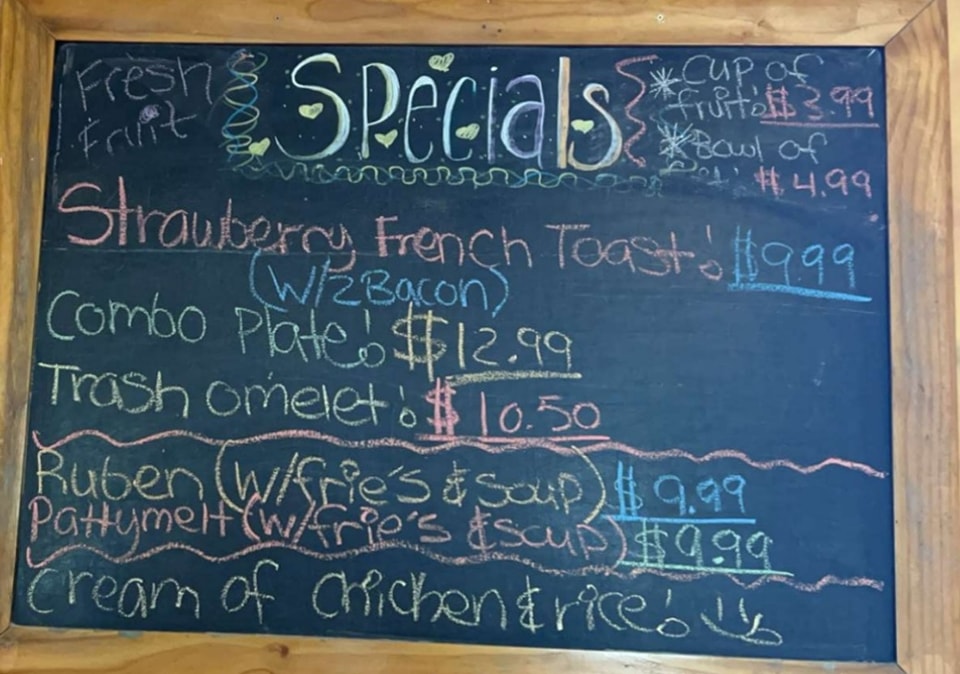 Fresh
Fruit
Specials
Cup of
fruit: $3.99
Bowl of
$4.99
Strawberry French Toast! $9.99
(W/2 Bacon)
Combo Plate! $12.99
Trash omelet! $10.50
Ruben (w/frie's & soup) $9.99
Pattymelt (w/frie's & soup) $9.99
Cream of Chicken & rice!